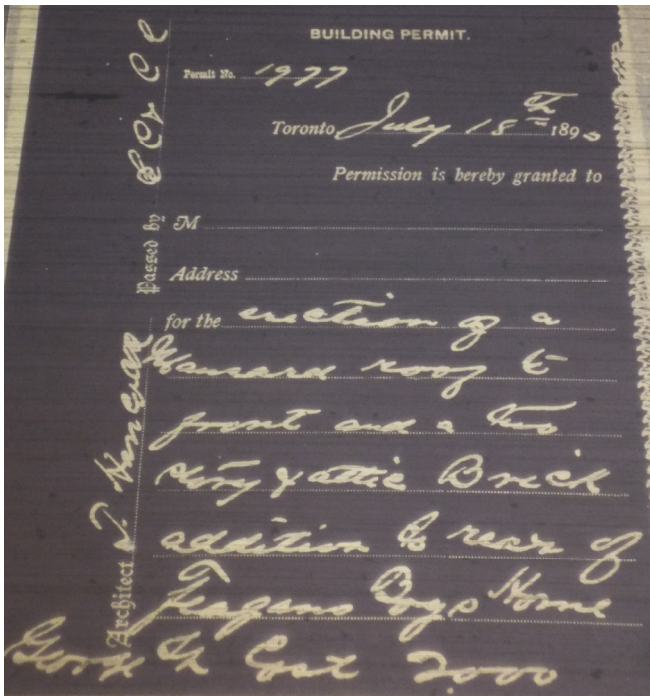 BUILDING PERMIT.
Permit No. 1977
Toronto July 18th 1890
Permission is hereby granted to
M
Address
for the erection of a
Mansard roof to
front and a two
story & attic Brick
addition to rear of
Feagans Boys Home
George St Cost 7000
Passed by
Architect J.